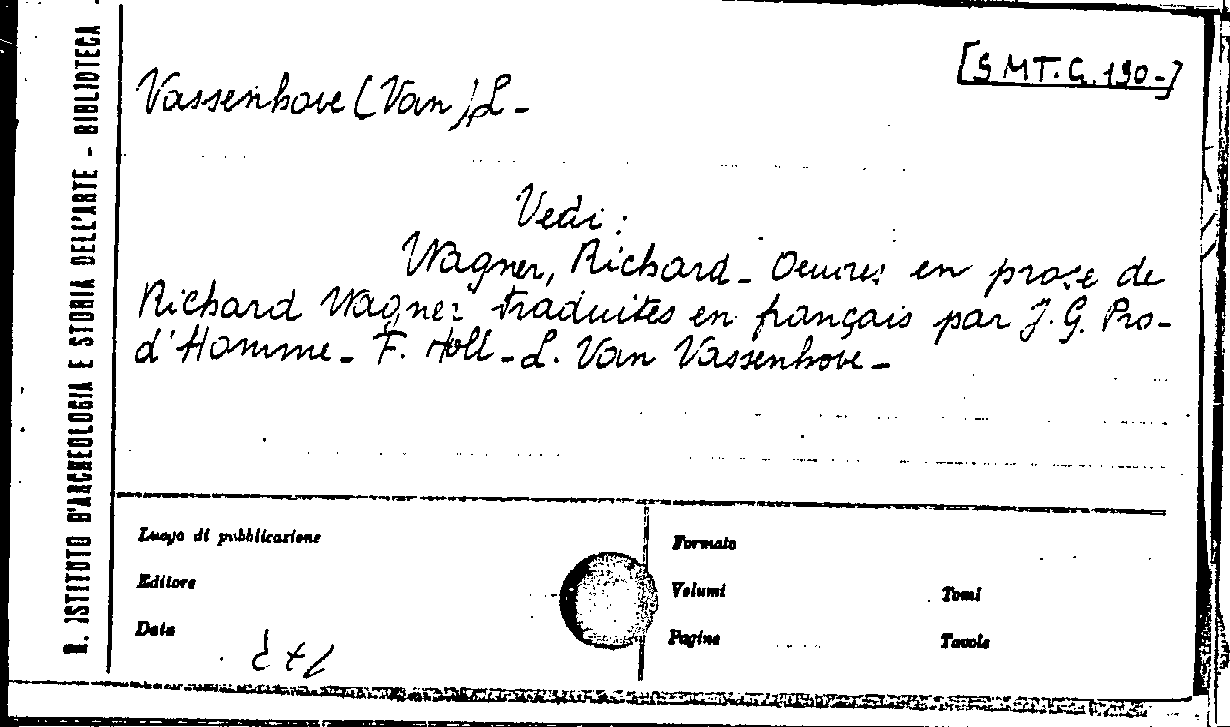 [SMT.G.190-]
Vassenhove (Van) L-
Vedi:
Wagner, Richard - Oeuvres en prose de
Richard Wagner traduites en français par J.G. Pro-
d'Homme - F. Holl - L. Van Vassenhove -
R. ISTITUTO D'ARCHEOLOGIA E STORIA DELL'ARTE - BIBLIOTECA
Luogo di pubblicazione
Editore
Data
Formato
Volumi
Tomi
Pagine
Tavole